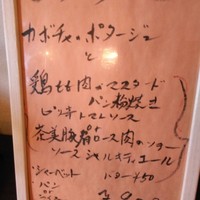 カボチャのポタージュ
と
鶏もも肉のマスタード
パン粉焼き
ピリ辛トマトソース
茶美豚肩ロース肉のソテー
ソースシャルキュティエール
シャーベット
バター ¥50
パン